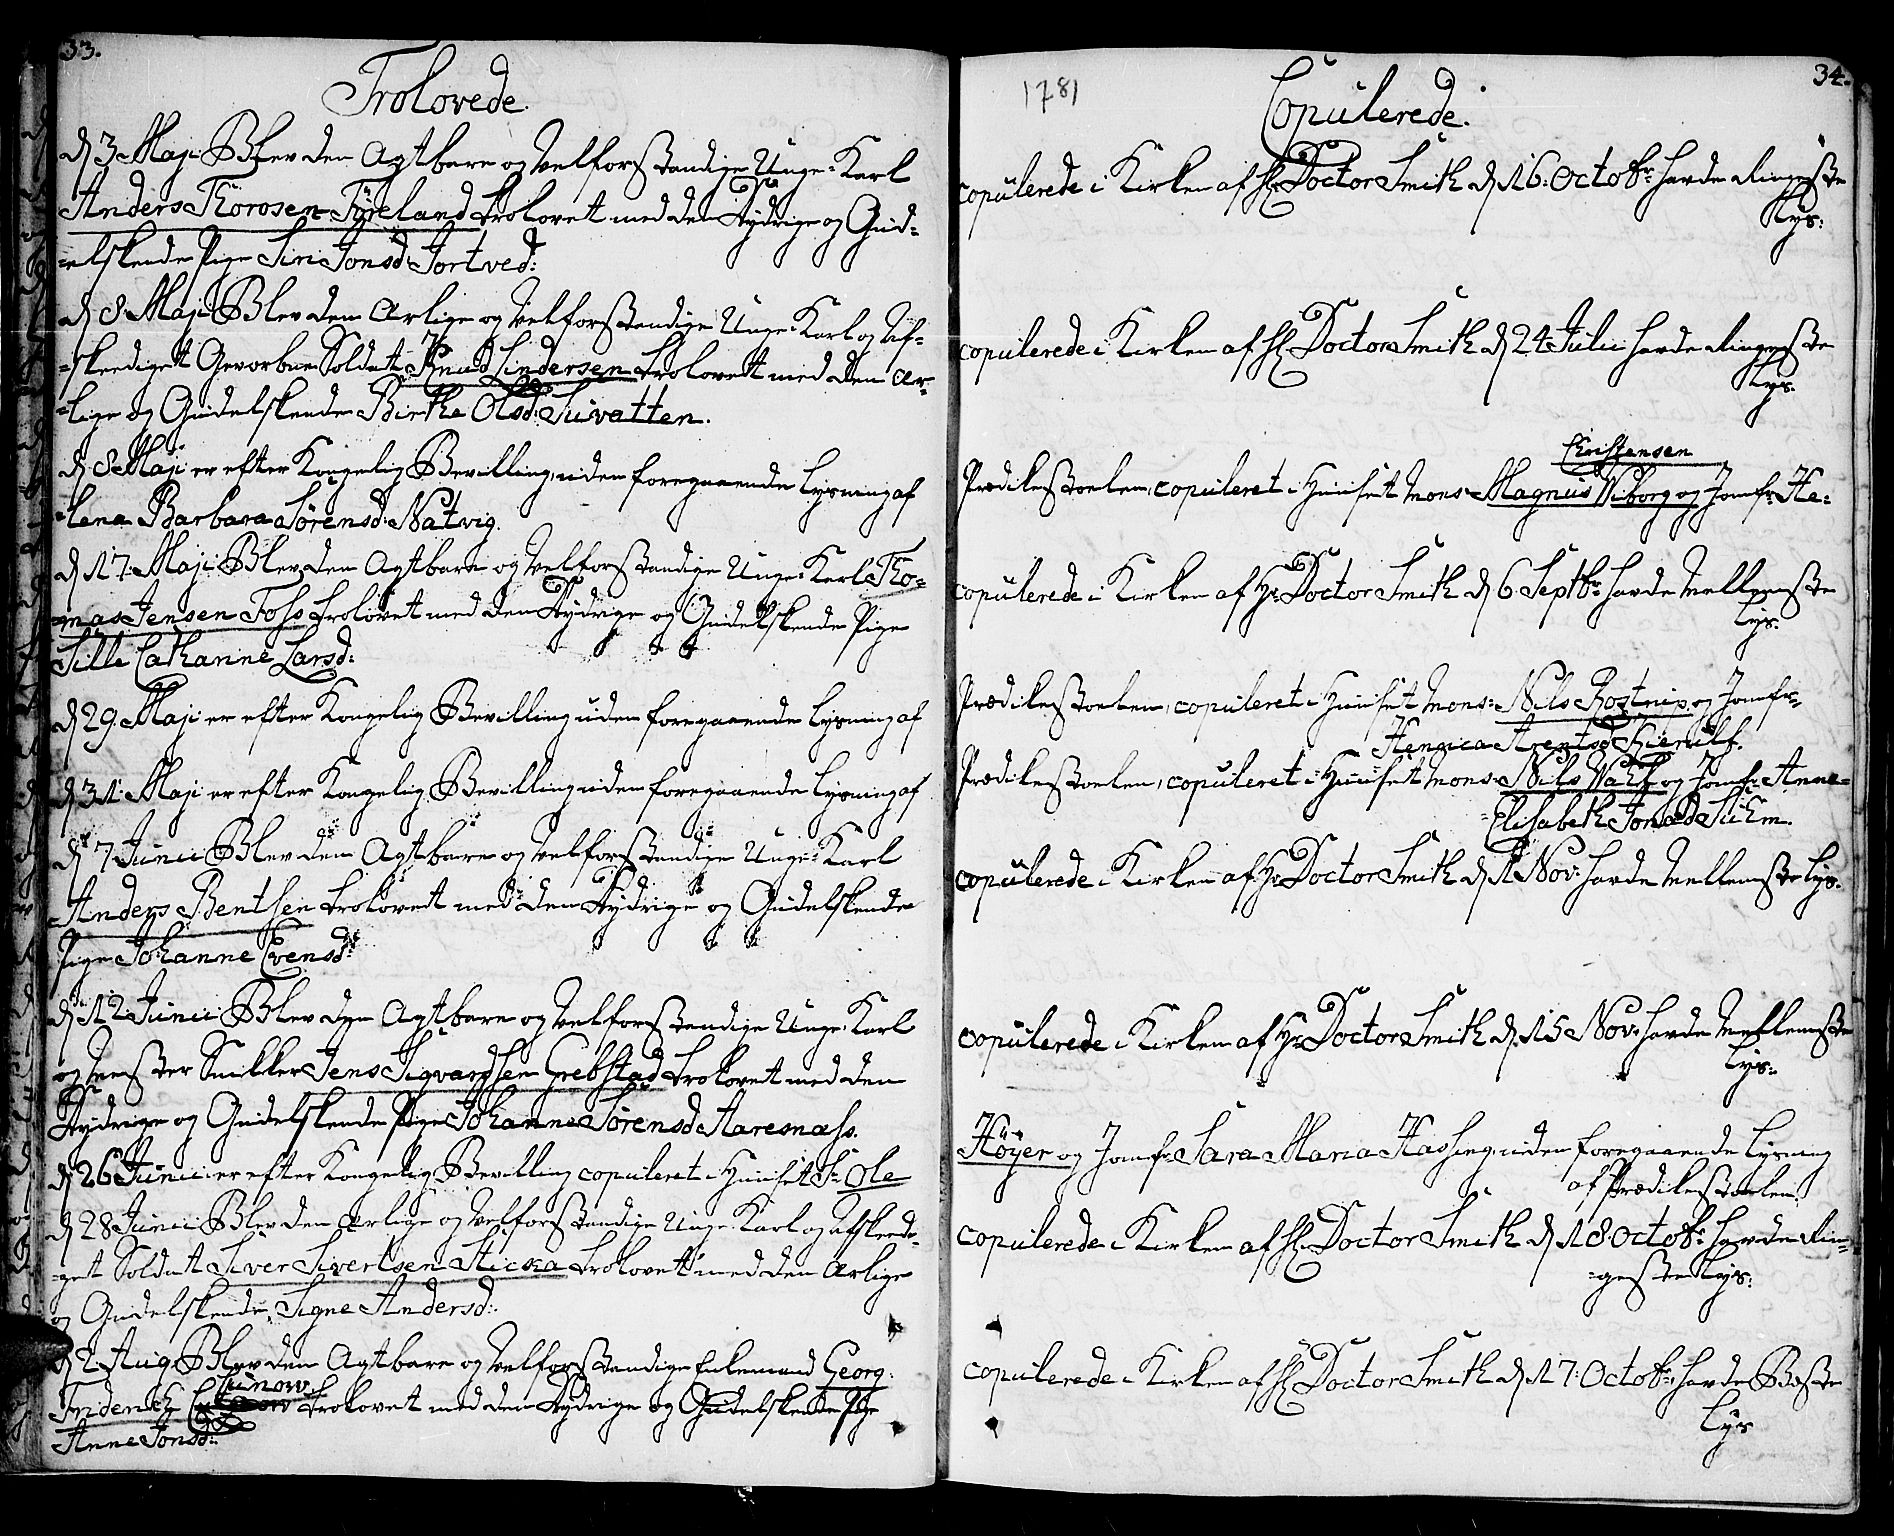 33.
Trolovede.
d 3 Maji Blev den Agtbare og Velforstandige Unge-Karl
Anders Thorosen Fyreland trolovet med den Dydrige og Gud-
-elskende Pige Siri Jonsd: Jortved:
d 8 Maji Blev den Ærlige og Velforstandige Unge-Karl og Af-
-skeediget Gevorben Soldat Knud Lindersen trolovet med den Ær-
-lige og Gudelskende Birthe Olsd: Suvatten.
d 8 Maji er efter Kongelig Bevilling, uden foregaaende Lysning af
-lena Barbara Sørensd: Natvig.
d 17 Maji Blev den Agtbare og Velforstandige Unge-Karl Tho-
-mas Jensen Foss trolovet med den Dydrige og Gudelskende Pige
Sille Cathanne Larsd:
d 29 Maji er efter Kongelig Bevilling uden foregaaende Lysning af
d 31 Maji er efter Kongelig Bevilling uden foregaaende Lysning af
d 7 Junii Blev den Agtbare og Velforstandige Unge-Karl
Anders Benthen trolovet med den Dydrige og Gudelskende
Pige Johanne Evensd:
d 12 Junii Blev den Agtbare og Velforstandige Unge-Karl
og Mester Snikker Jens Sigvardsen Grebstad trolovet med den
Dydrige og Gudelskende Pige Johanne Sørensd Aaresnæss.
d 26 Junii er efter Kongelig Bevilling copuleret i Huuset Sr Ole
d 28 Junii Blev den Ærlige og Velforstandige Unge-Karl og Afskeedi-
-get Soldat Siver Sivertsen trolovet med den Ærlige
og Gudelskende Signe Andersd:
d 2 Aug: Blev den Agtbare og Velforstandige Enkemand Georg
Friderich Lunow trolovet med den Dydrige og Gudelskende Pige
Anne Jonsd:
34.
1781
Copulerede.
copulerede i Kirken af Hr Doctor Smith d 16 Octobr: havde Ringeste
Lys:
copulerede i Kirken af Hr Doctor Smith d 24 Julii havde Ringeste
Lys:
Christensen
Prædikestoelen, copuleret i Huuset Mons: Magnus Wiborg og Jomfr: He-
copulerede i Kirken af Hr Doctor Smith d 6 Septbr: havde Mellemste
Lys:
Prædikestoelen, copuleret i Huuset Mons: Nils Rostrup og Jomfr:
Hennica Arentsd Kierulf.
Prædikestoelen, copuleret i Huuset Mons: Nils Wahl og Jomfr: Anne-
-Elisabeth Jonæd Suhm.
copulerede i Kirken af Hr Doctor Smith d 1 Nov: havde Mellemste Lys:
copulerede i Kirken af Hr Doctor Smith d. 15 Nov: havde Mellemste
Lys:
Höyer og Jomfr: Sara Maria Hassing, uden foregaaende Lysning
af Prædikestoelen.
copulerede i Kirken af Hr Doctor Smith d 18 Octobr: havde Rin-
-geste Lys:
copulerede i Kirken af Hr Doctor Smith d 17 Octobr: havde Beste
Lys